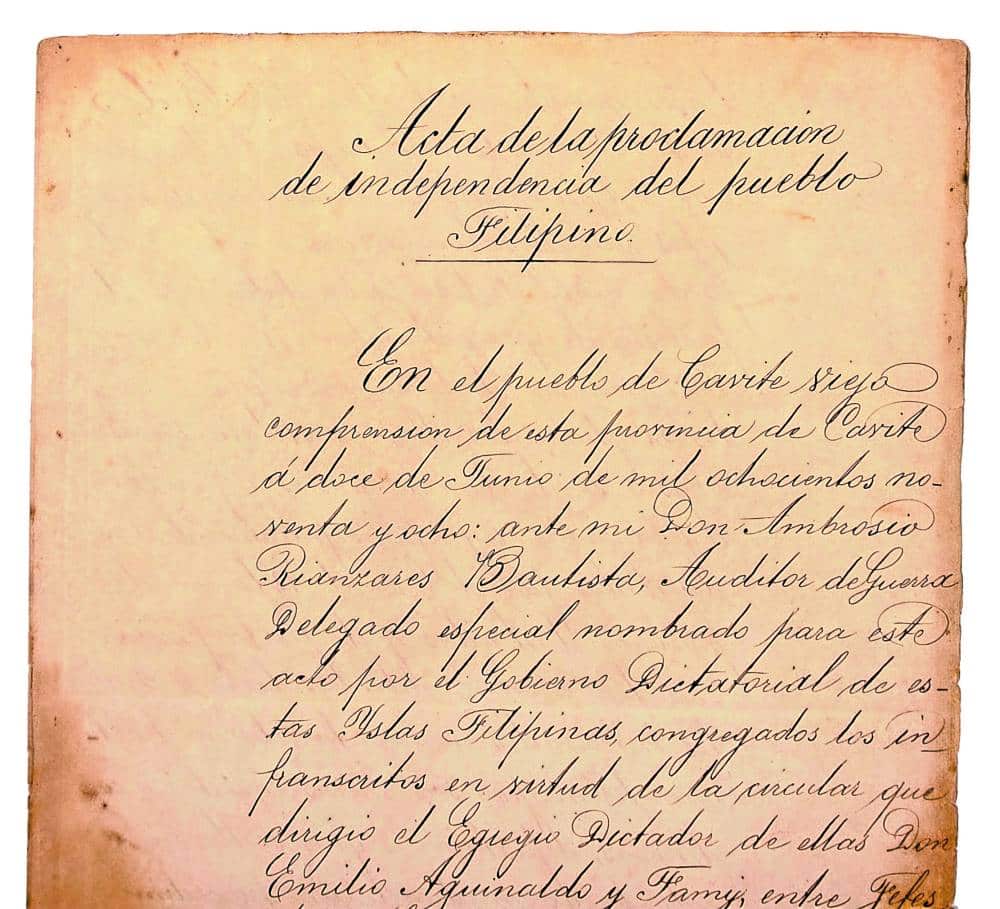 Acta de la proclamacion
de independencia del pueblo
Filipino.
En el pueblo de Cavite viejo
comprension de esta provincia de Cavite
á doce de Junio de mil ochocientos no-
venta y ocho: ante mi Don Ambrosio
Rianzares Bautista, Auditor de Guerra
Delegado especial nombrado para este
acto por el Gobierno Dictatorial de es-
tas Yslas Filipinas, congregados los in
franscritos en virtud de la circular que
dirigio el Egregio Dictador de ellas Don
Emilio Aguinaldo y Famy, entre Jefes